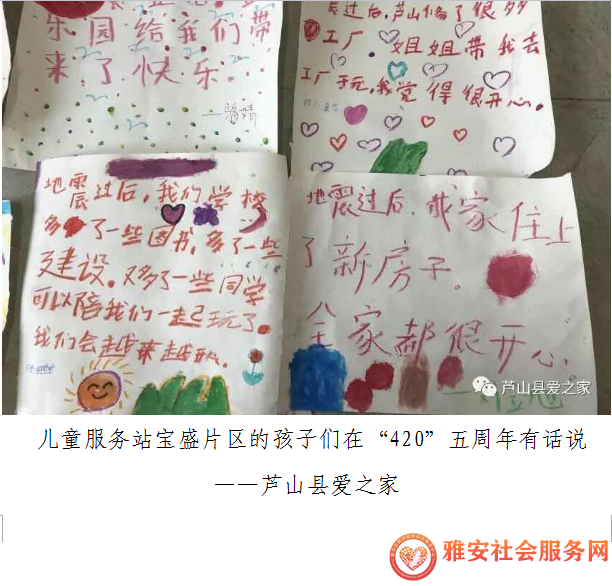 乐园给我们带
来了快乐
震过后,芦山修了很多
工厂。姐姐带我去
工厂玩,我觉得很开心。
地震过后,我们学校
多了一些图书,多了一些
建设。又多了一些同学
可以陪我们一起玩了。
我们会越来越好。
地震过后,我家住上
了新房子。
全家都很开心
芦山县爱之家
儿童服务站宝盛片区的孩子们在“420”五周年有话说
——芦山县爱之家
雅安社会服务网